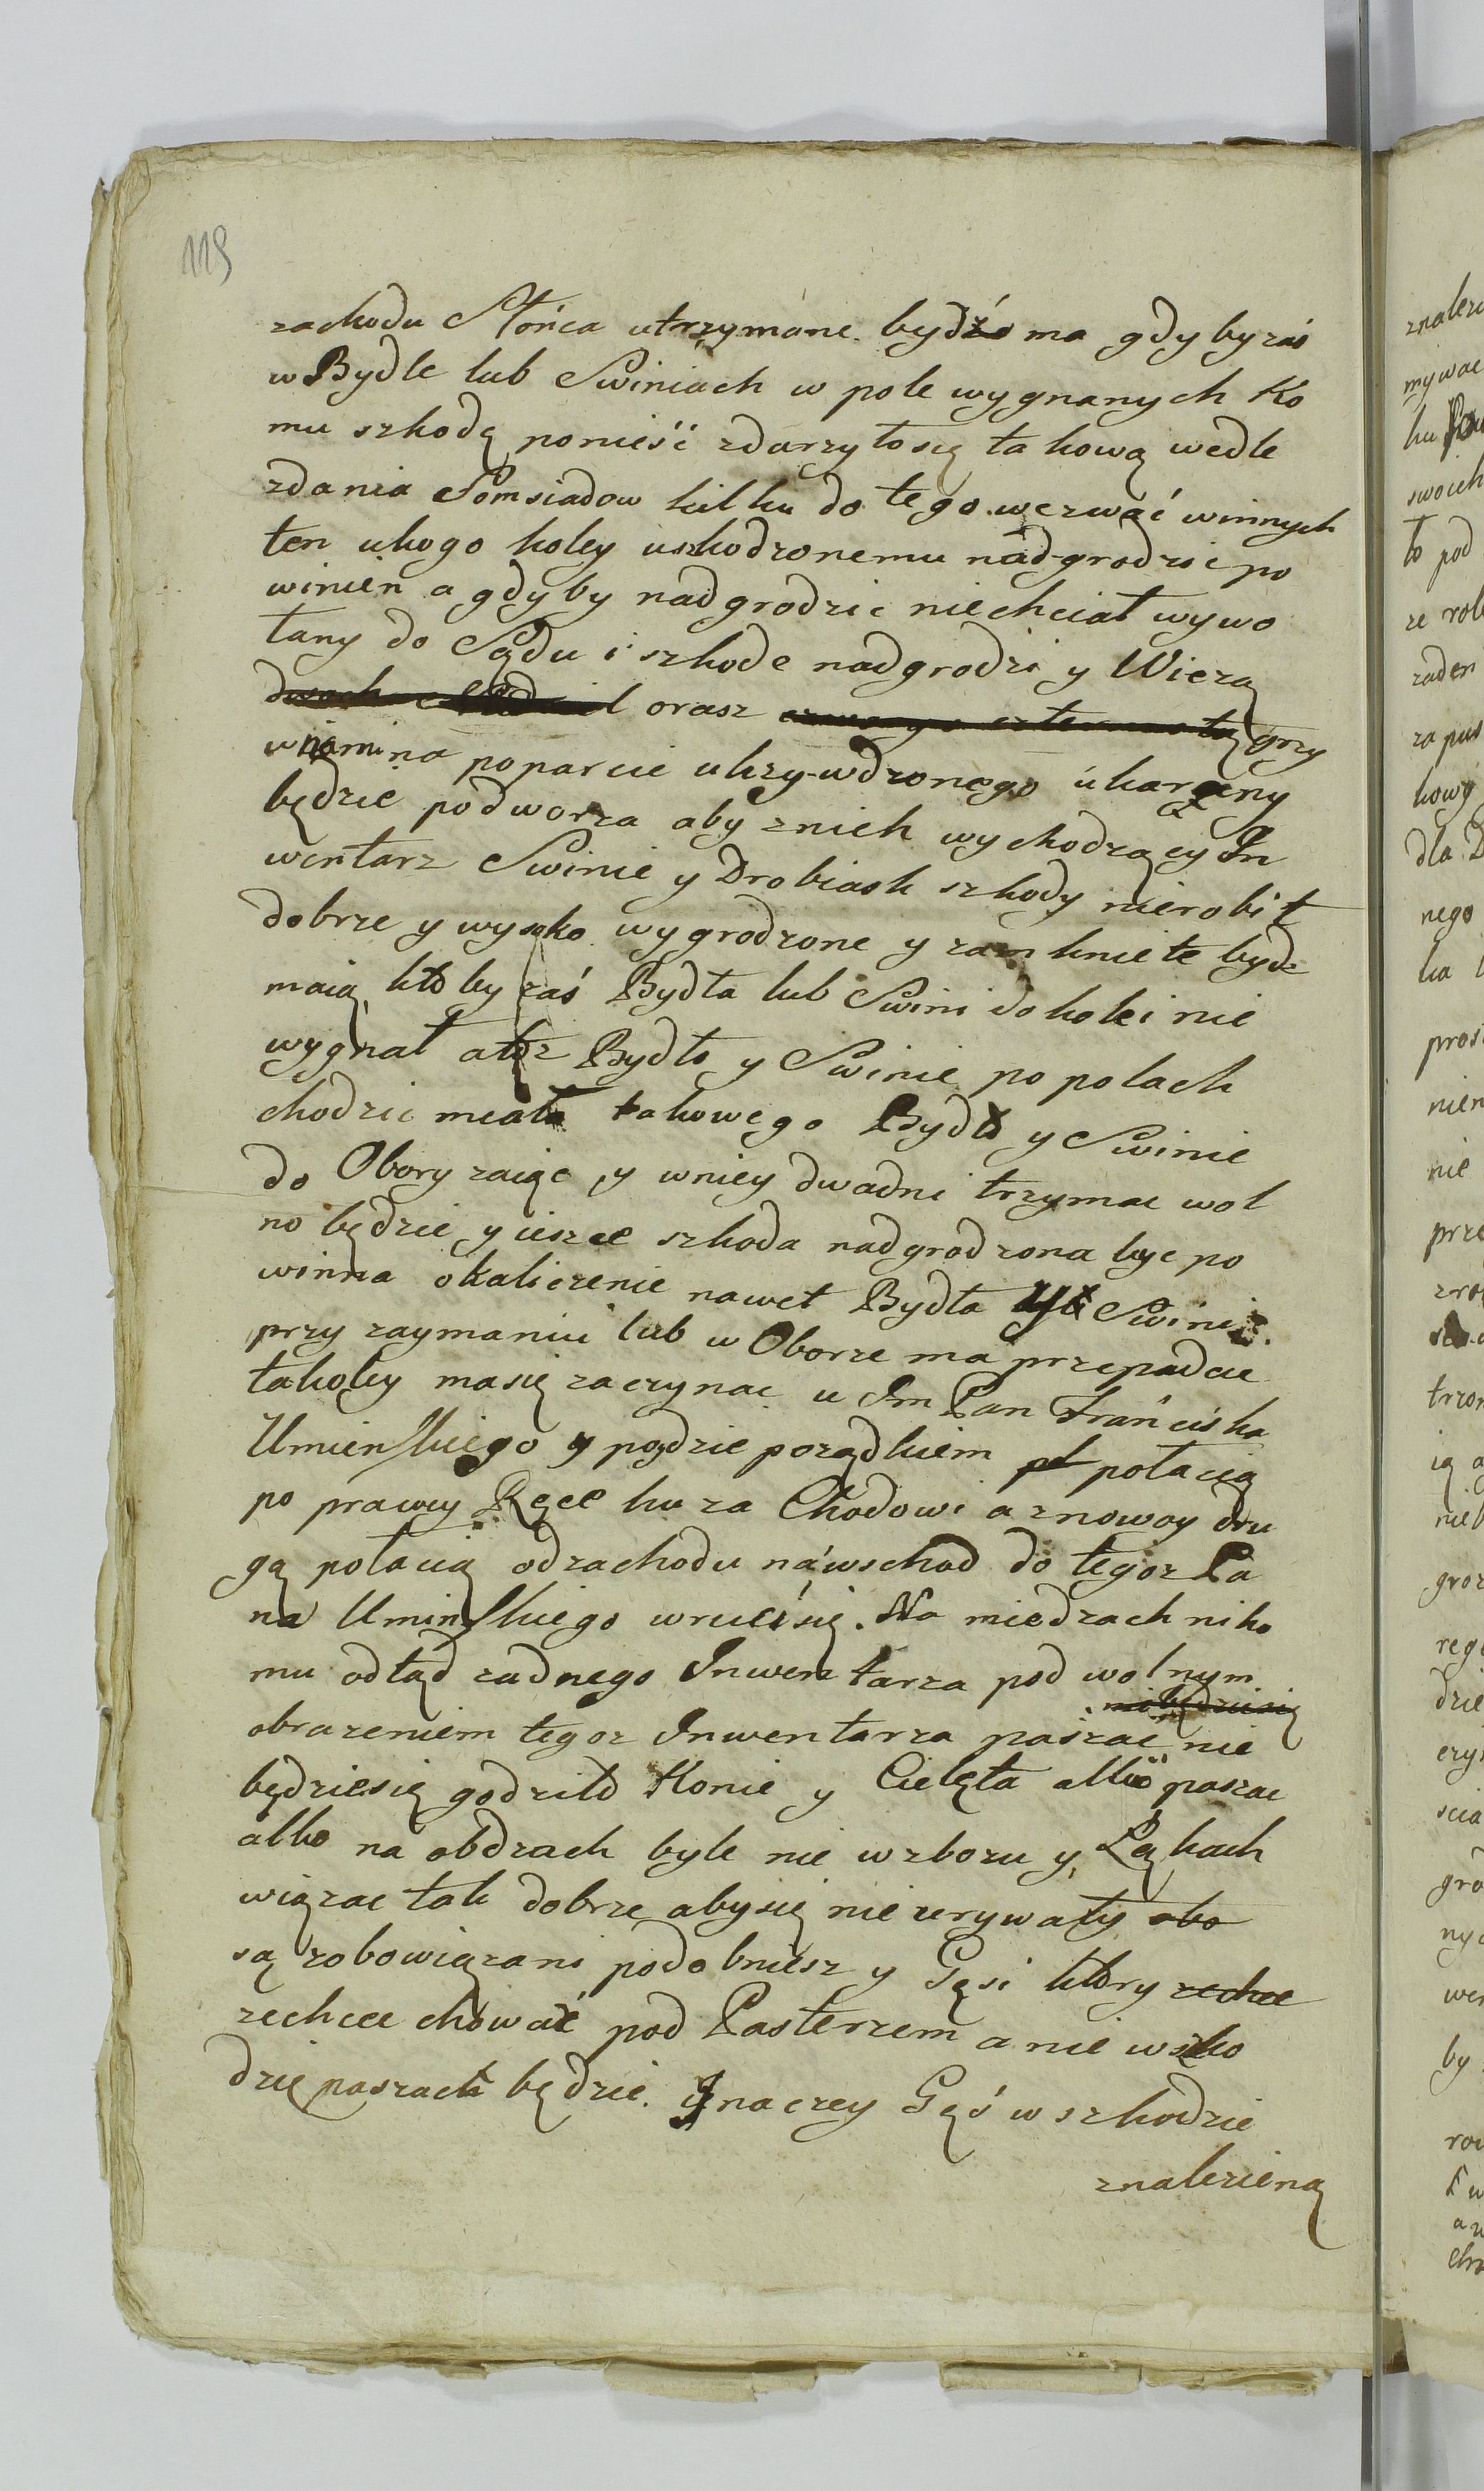 119
zachodu Słońca utrzymane bydź ma gdyby zaś
w Bydle lub Swiniach w pole wygnanych Ko
mu szkodę ponieść zdarzyłosię takową wedle
zdania Somsiadow kilku do tego wezwać winnych
ten ukogo koley uszkodzonemu nadgrodzic po
winien a gdyby nadgrodzic niechciał wywo
łany do Sądu i szkode nadgrodzi y Wiezą
orasz grzy
wnami na poparcie ukrzywdzonego ukarany
będzie podworza aby znich wychodzący In
wentarz Swinie y Drobiask szkody nierobił
dobrze y wysoko wygrodzone y zamkniete bydz
maią, ktoby zaś Bydła lub Swini do kolei nie
wygnał a też Bydło y Swinie po polach
chodzic miało takowego Bydło y Swinie
do Obory zaiąc y wniey dwadni trzymac wol
no będzie y ieszce szkoda nadgrodzona byc po
winna okaliczenie nawet Bydła Swini
przy zaymaniu lub w Oborze ma przepadcie
takoley masię zaczynac u Im Pan Franciska
Umienskiego y pojdzie porządkiem połacią
po prawey Ręce ku za Chodowi a znowoy dru
gą połacią odzachodu nawschod do tegoz Pa
na Uminskiego wrucisię. Na miedzach niko
mu odtąd zadnego Inwentarza pod wolnym
niebędziesię
obrazeniem tegoz Inwentarza paszac nie
będziesię godziło Konie y Cielęta albo paszac
albo na obdzach byle nie wzbozu y Łąkach
wiązac tak dobrze abysię nieurywały obo
są zobowiązani podobniesz y Gęsi ktory zechce
zechce chować pod Pasterzem a nie wszko
dzie paszach będzie. Jnaczey Gęś w szkodzie
znalezieną